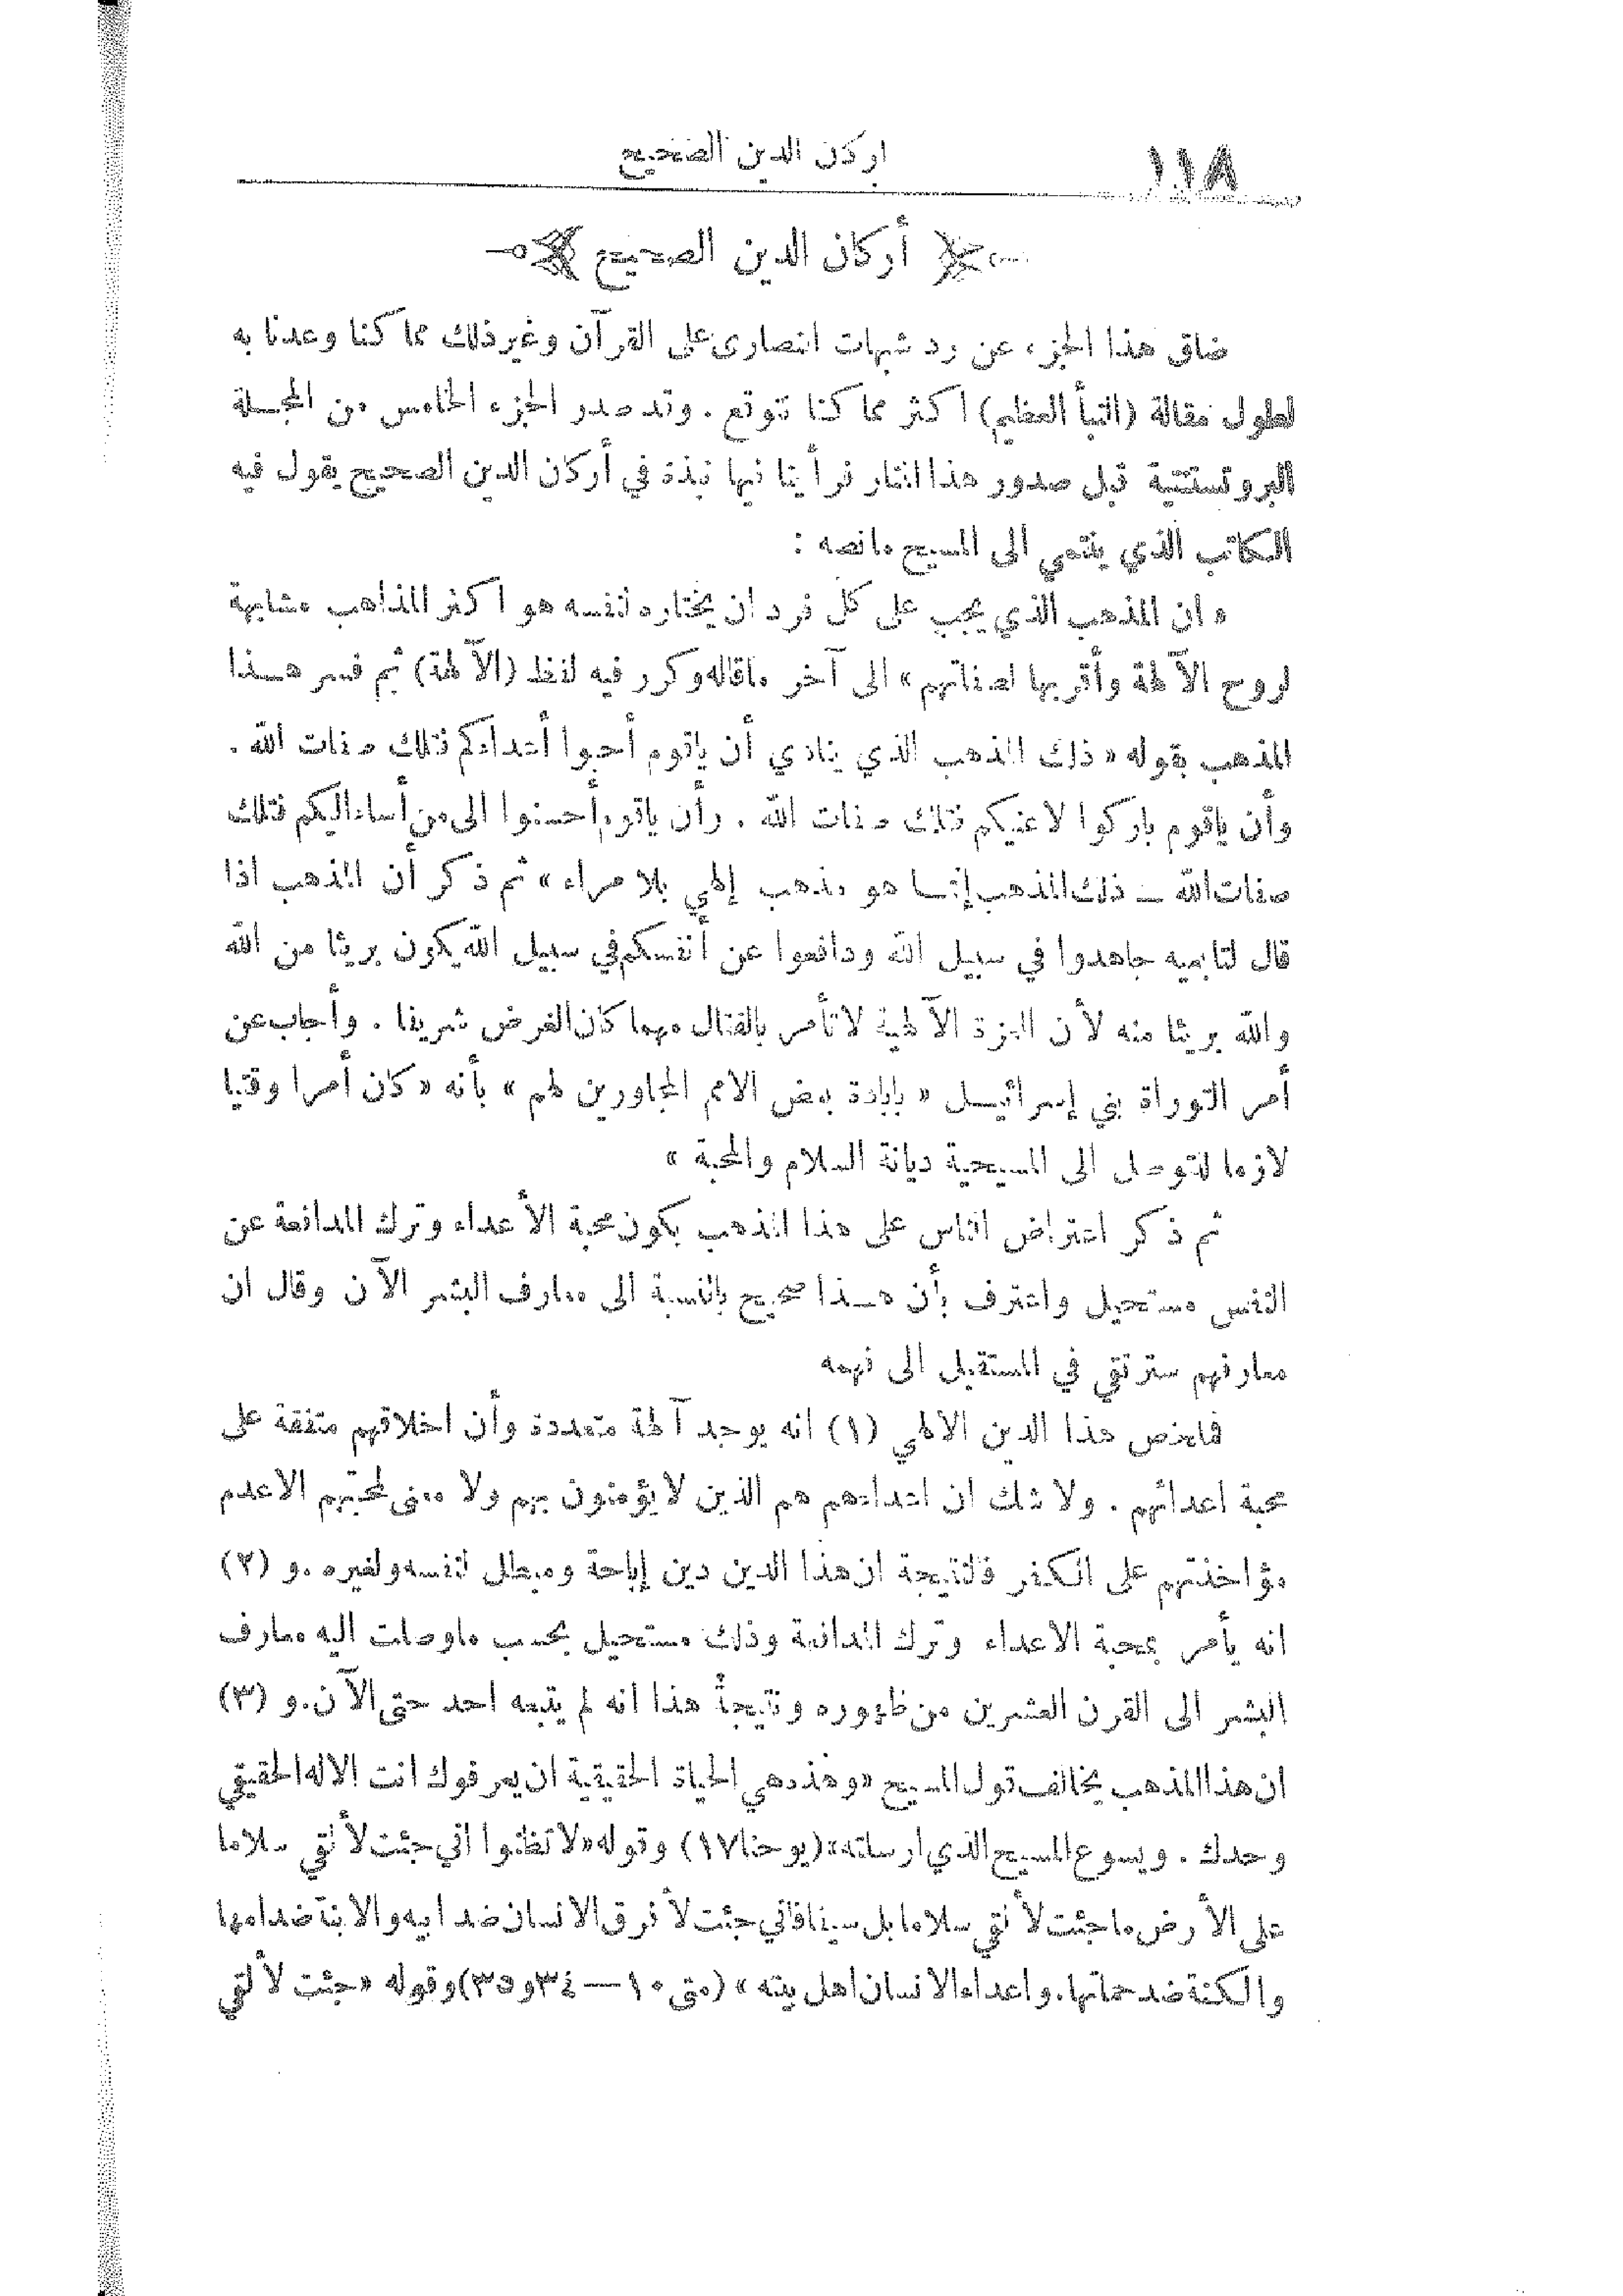 ١١٨
اركان الدين الصحيح
أركان الدين الصحيح
ضاق هذا الجزء عن رد شبهات النصارى على القرآن وغير ذلك مما كنا وعدنا به
لطول مقالة (النبأ العظيم) أكثر مما كنا نتوقع . وقد صدر الجزء الخامس من المجلة
البروتستنتية قبل صدور هذا المنار فرأينا فيها نبذة في أركان الدين الصحيح يقول فيه
الكاتب الذي ينتمي الى المسيح مانصه :
« ان المذهب الذي يجب على كل فرد ان يختاره لنفسه هو اكثر المذاهب مشابهة
لروح الآلهة وأقربها لصفاتهم » الى آخر ماقاله وكرر فيه لفظ (الآلهة) ثم فسر هذا
المذهب بقوله « ذلك المذهب الذي ينادي أن ياقوم أحبوا أعداءكم فتلك صفات الله .
وأن ياقوم باركوا لاعنيكم فتلك صفات الله . وأن ياقوم أحسنوا الى من أساء اليكم فتلك
صفات الله ـ ذلك المذهب إنما هو مذهب إلهي بلا مراء » ثم ذكر أن المذهب اذا
قال لتابعيه جاهدوا في سبيل الله ودافعوا عن أنفسكم في سبيل الله يكون بريئا من الله
والله بريئا منه لأن العزة الآلهية لا تأمر بالقتال مهما كان الغرض شريفا . وأجاب عن
أمر التوراة بني إسرائيل « بإبادة بعض الامم المجاورين لهم » بأنه « كان أمرا وقتيا
لازما للتوصل الى المسيحية ديانة السلام والمحبة »
ثم ذكر اعتراض الناس على هذا المذهب بكون محبة الأعداء وترك المدافعة عن
النفس مستحيل واعترف بأن هذا صحيح بالنسبة الى معارف البشر الآن وقال ان
معارفهم سترتقي في المستقبل الى فهمه
فملخص هذا الدين الالهي (١) انه يوجد آلهة متعددة وأن اخلاقهم متفقة على
محبة اعدائهم . ولا شك ان اعداءهم هم الذين لا يؤمنون بهم ولا معنى لمحبتهم الا عدم
مؤاخذتهم على الكفر فالنتيجة ان هذا الدين دين إباحة ومبطل لنفسه ولغيره .و (٢)
انه يأمر بمحبة الاعداء وترك المدافعة وذلك مستحيل بحسب ماوصلت اليه معارف
البشر الى القرن العشرين من ظهوره ونتيجة هذا انه لم يتبعه احد حتى الآن.و (٣)
ان هذا المذهب يخالف قول المسيح «وهذه هي الحياة الحقيقية ان يعرفوك انت الاله الحقيقي
وحدك . ويسوع المسيح الذي ارسلته» (يوحنا١٧) وقوله «لا تظنوا اني جئت لألقي سلاما
على الأرض ماجئت لألقي سلاما بل سيفا فاني جئت لأفرق الانسان ضد ابيه والابنة ضد امها
والكنة ضد حماتها. واعداء الانسان اهل بيته » (متى ١٠ — ٣٤ و٣٥) وقوله «جئت لألقي